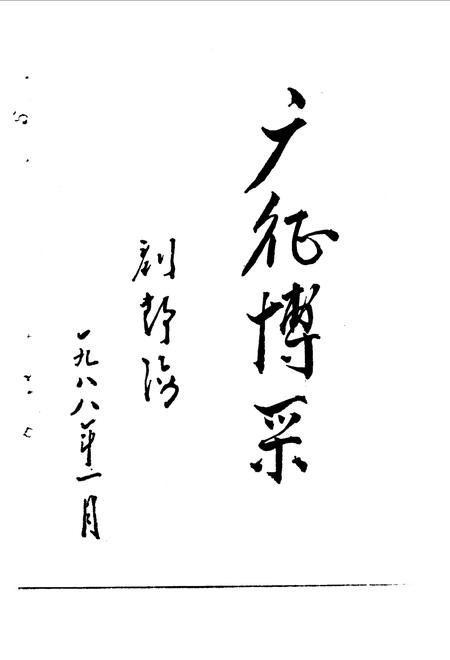 广征博采
刘静海
一九八八年一月